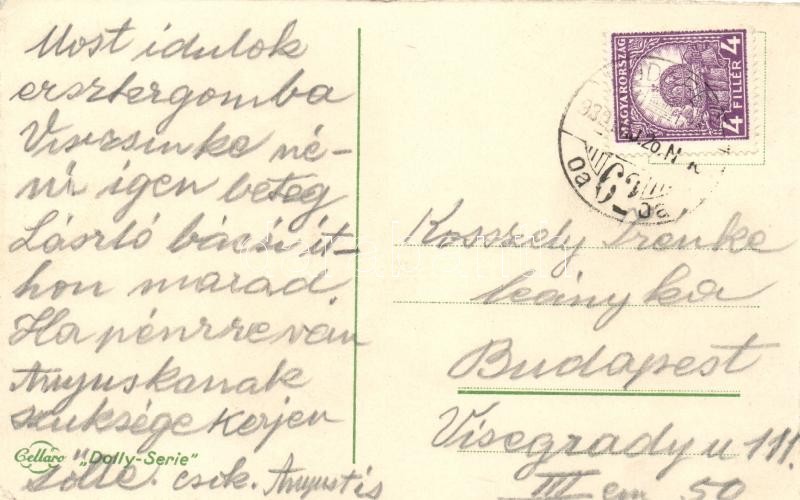 Most idulok
ersztergomba
Viorsinke né-
ni igen beteg
László bácsi it-
hon marad
Ha pénrre ván
Anyuskanak
szuksége kérjen
tölle. csok. Anyustis
Cellaro "Dolly-Serie"
MAGYARORSZÁG
4 FILLÉR 4
Kosszedy Irenke
leányka
Budapest
Visegrády u 111.
III em 50